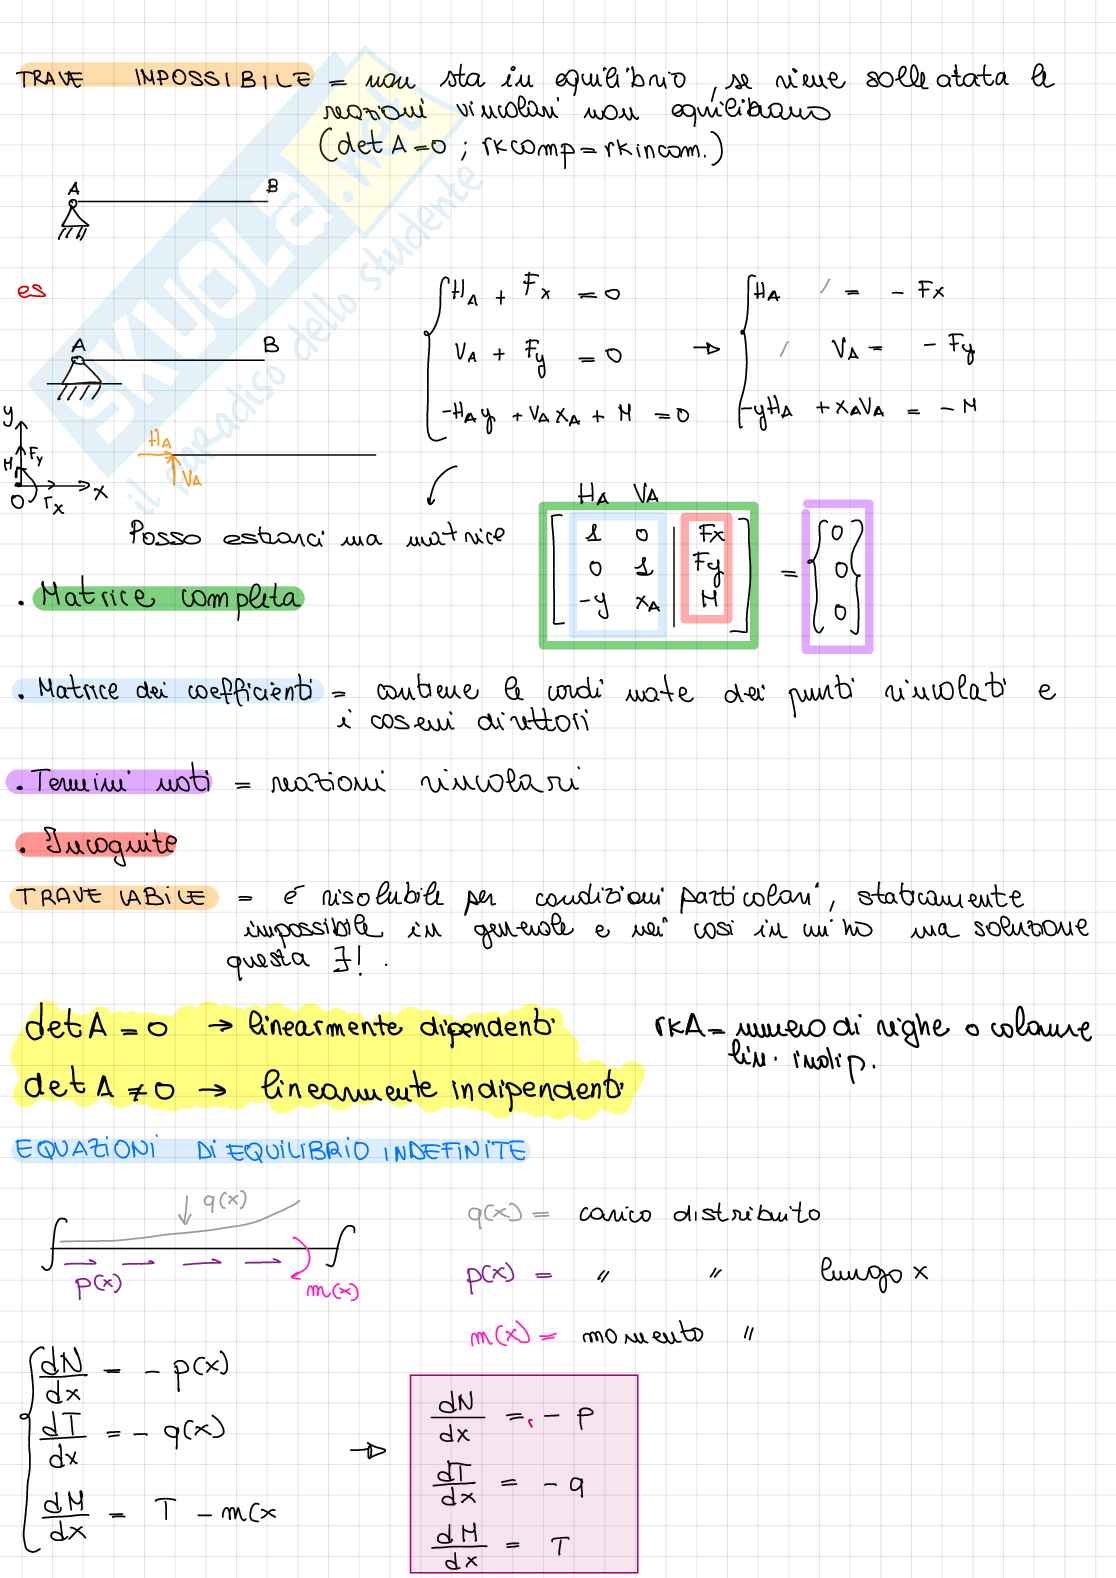 TRAVE IMPOSSIBILE = non sta in equilibrio, se viene sollecitata le
reazioni vincolari non equilibrano
(det A = 0 ; rkcomp = rkincom.)
A B
es
A B
H_A + F_x = 0
V_A + F_y = 0
-H_A y + V_A x_A + M = 0
H_A / = - F_x
/ V_A = - F_y
-yH_A + x_A V_A = - M
y
F_y
M
O F_x x
H_A
V_A
H_A V_A
Posso estrarci una matrice
1 0 | Fx
0 1 | Fy
-y x_A | M
= 0
0
0
. Matrice completa
. Matrice dei coefficienti = contiene le coordinate dei punti vincolati e
i coseni direttori
. Termini noti = reazioni vincolari
. Incognite
TRAVE LABILE = è risolubile per condizioni particolari, staticamente
impossibile in generale e nei casi in cui ho una soluzione
questa ∃! .
det A = 0 → linearmente dipendenti
det A ≠ 0 → linearmente indipendenti
rkA = numero di righe o colonne
lin. indip.
EQUAZIONI DI EQUILIBRIO INDEFINITE
q(x)
p(x)
m(x)
q(x) = carico distribuito
p(x) = " " lungo x
m(x) = momento "
dN/dx = - p(x)
dT/dx = - q(x)
dM/dx = T - m(x
dN/dx = - p
dT/dx = - q
dM/dx = T
SKUOLA.net
il paradiso dello studente